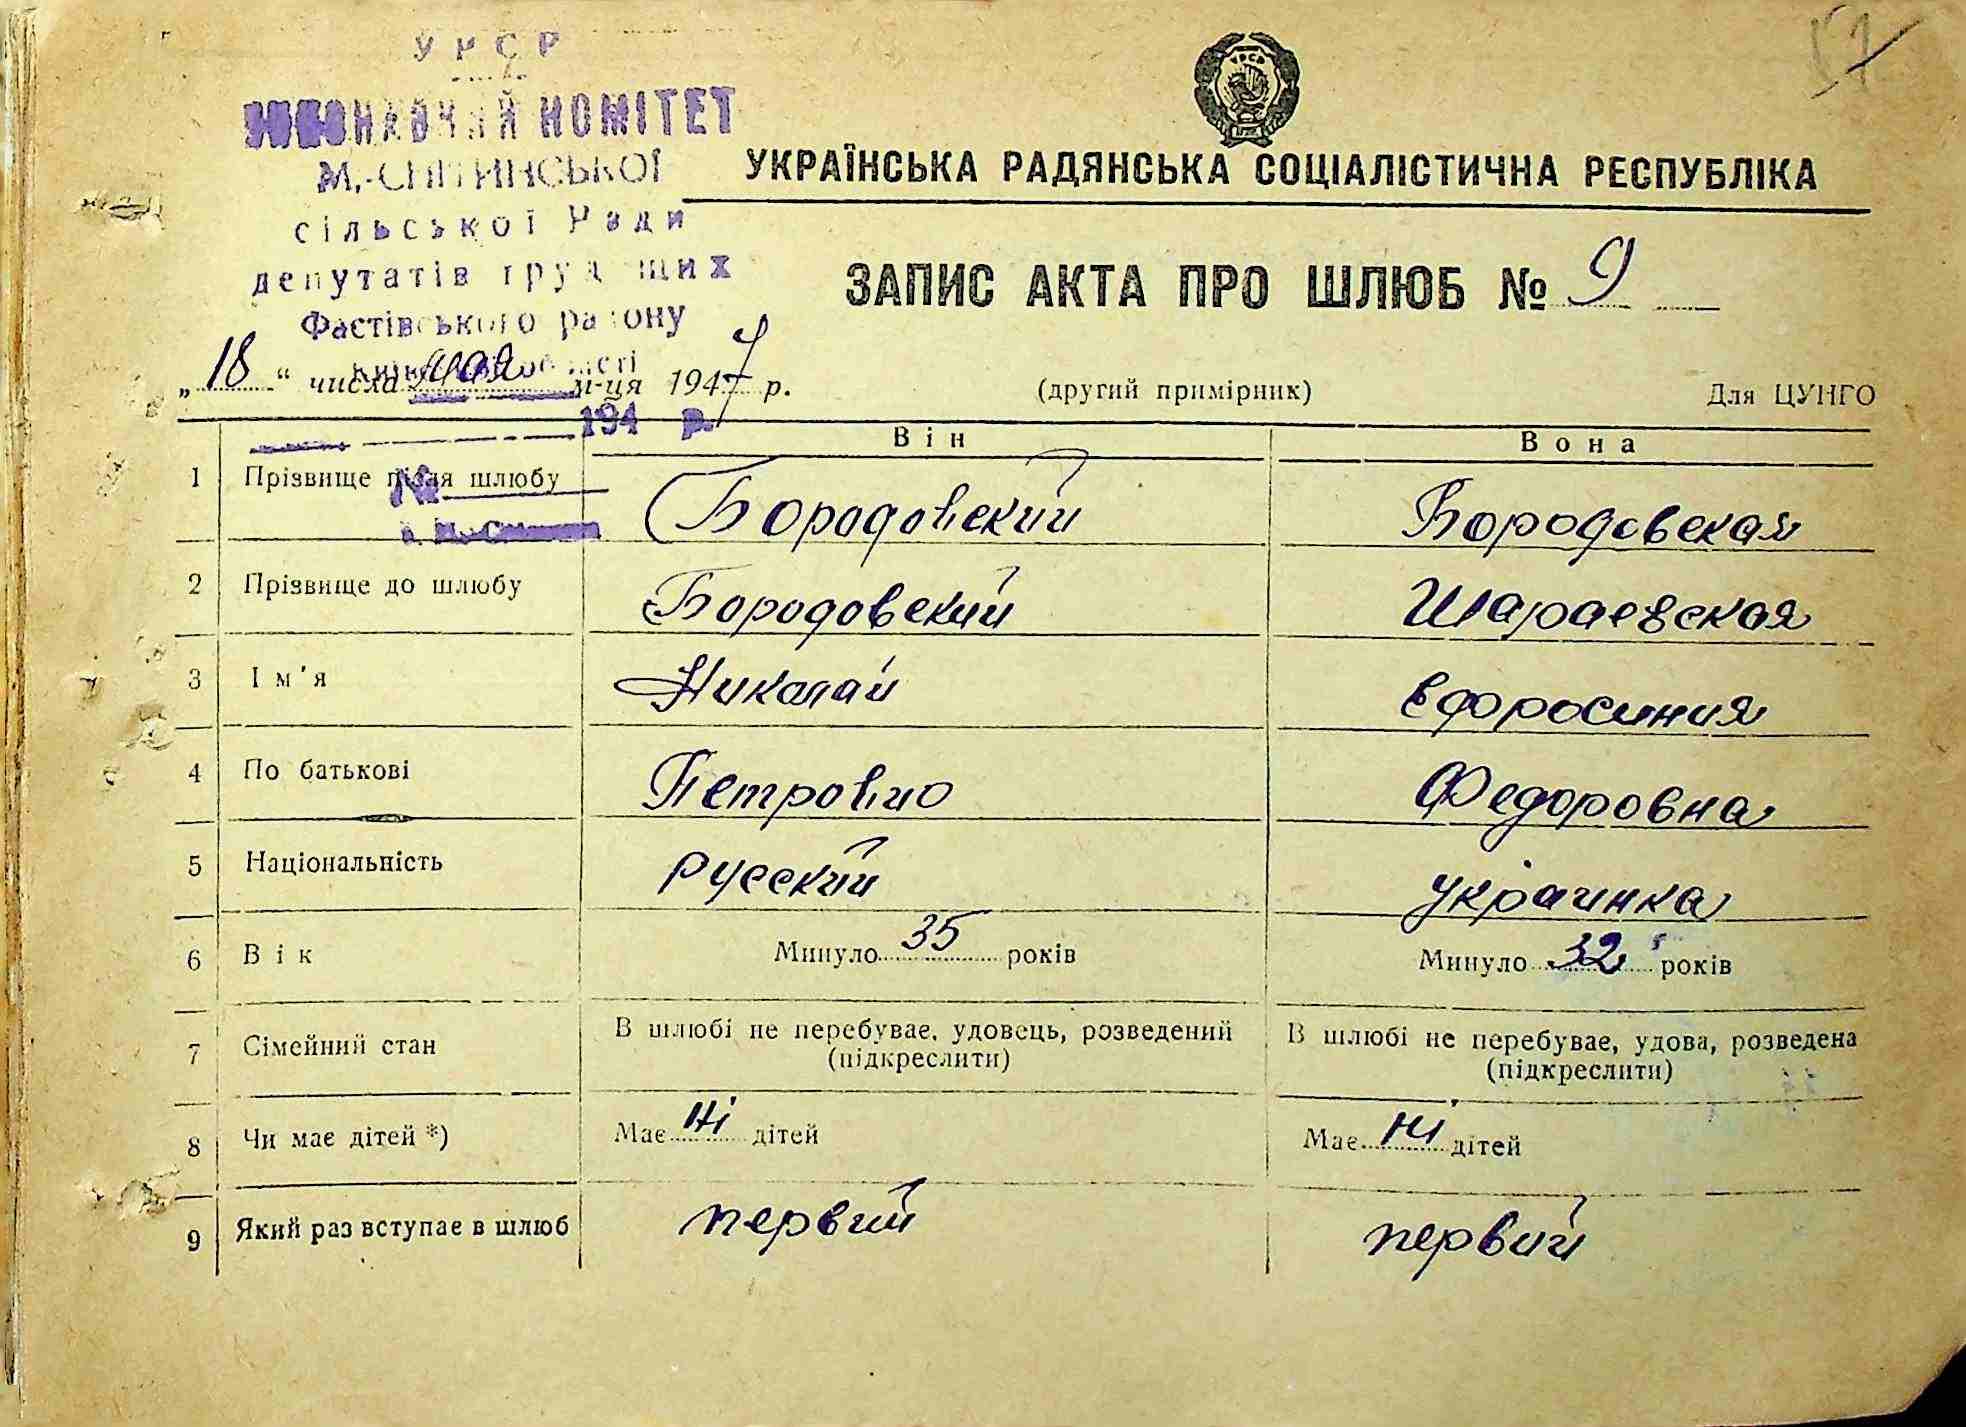 УРСР
ВИКОНАВЧИЙ КОМІТЕТ
М.-СНІТИНСЬКОЇ
сільської Ради
депутатів трудящих
Фастівського району
Київської області
194 р.
№
УРСР
УКРАЇНСЬКА РАДЯНСЬКА СОЦІАЛІСТИЧНА РЕСПУБЛІКА
ЗАПИС АКТА ПРО ШЛЮБ № 9
„18“ числа мая м-ця 1947 р.
(другий примірник)
Для ЦУНГО
Він Вона
1 Прізвище після шлюбу Бородовский Бородовская
2 Прізвище до шлюбу Бородовский Шараевская
3 Ім'я Николай Ефросиния
4 По батькові Петрович Федоровна
5 Національність русский украинка
6 Вік Минуло 35 років Минуло 32 років
7 Сімейний стан В шлюбі не перебуває, удовець, розведений (підкреслити) В шлюбі не перебуває, удова, розведена (підкреслити)
8 Чи має дітей *) Має ні дітей Має ні дітей
9 Який раз вступає в шлюб первий первий